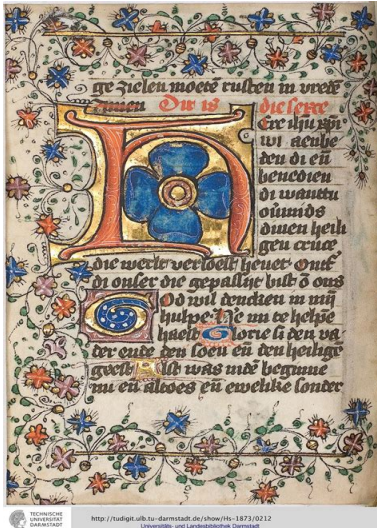 ge zielen moetē rusten in vrede
Amen Dit is die serte
Ere ihū xpi
wi aenbe
den di eñ
benedien
di wanttu
dinen heili
gen cruce
die werlt verloest heuet Ontf
di onser die gepassijt bist ō ons
God wil dencken in mijn
hulpe nu te helpe
haest Glorie si den va
der ende den soen eñ den heilige
geest Alst was inde beginne
nu eñ altoes eñ ewelike sonder
TECHNISCHE
UNIVERSITÄT
DARMSTADT
http://tudigit.ulb.tu-darmstadt.de/show/Hs-1873/0212
Universitäts- und Landesbibliothek Darmstadt